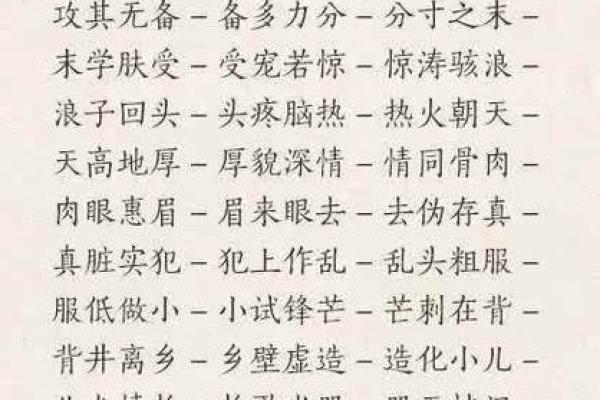 攻其无备－备多力分－分寸之末－
末学肤受－受宠若惊－惊涛骇浪－
浪子回头－头疼脑热－热火朝天－
天高地厚－厚貌深情－情同骨肉－
肉眼惠眉－眉来眼去－去伪存真－
真脏实犯－犯上作乱－乱头粗服－
服低做小－小试锋芒－芒刺在背－
背井离乡－乡壁虚造－造化小儿－